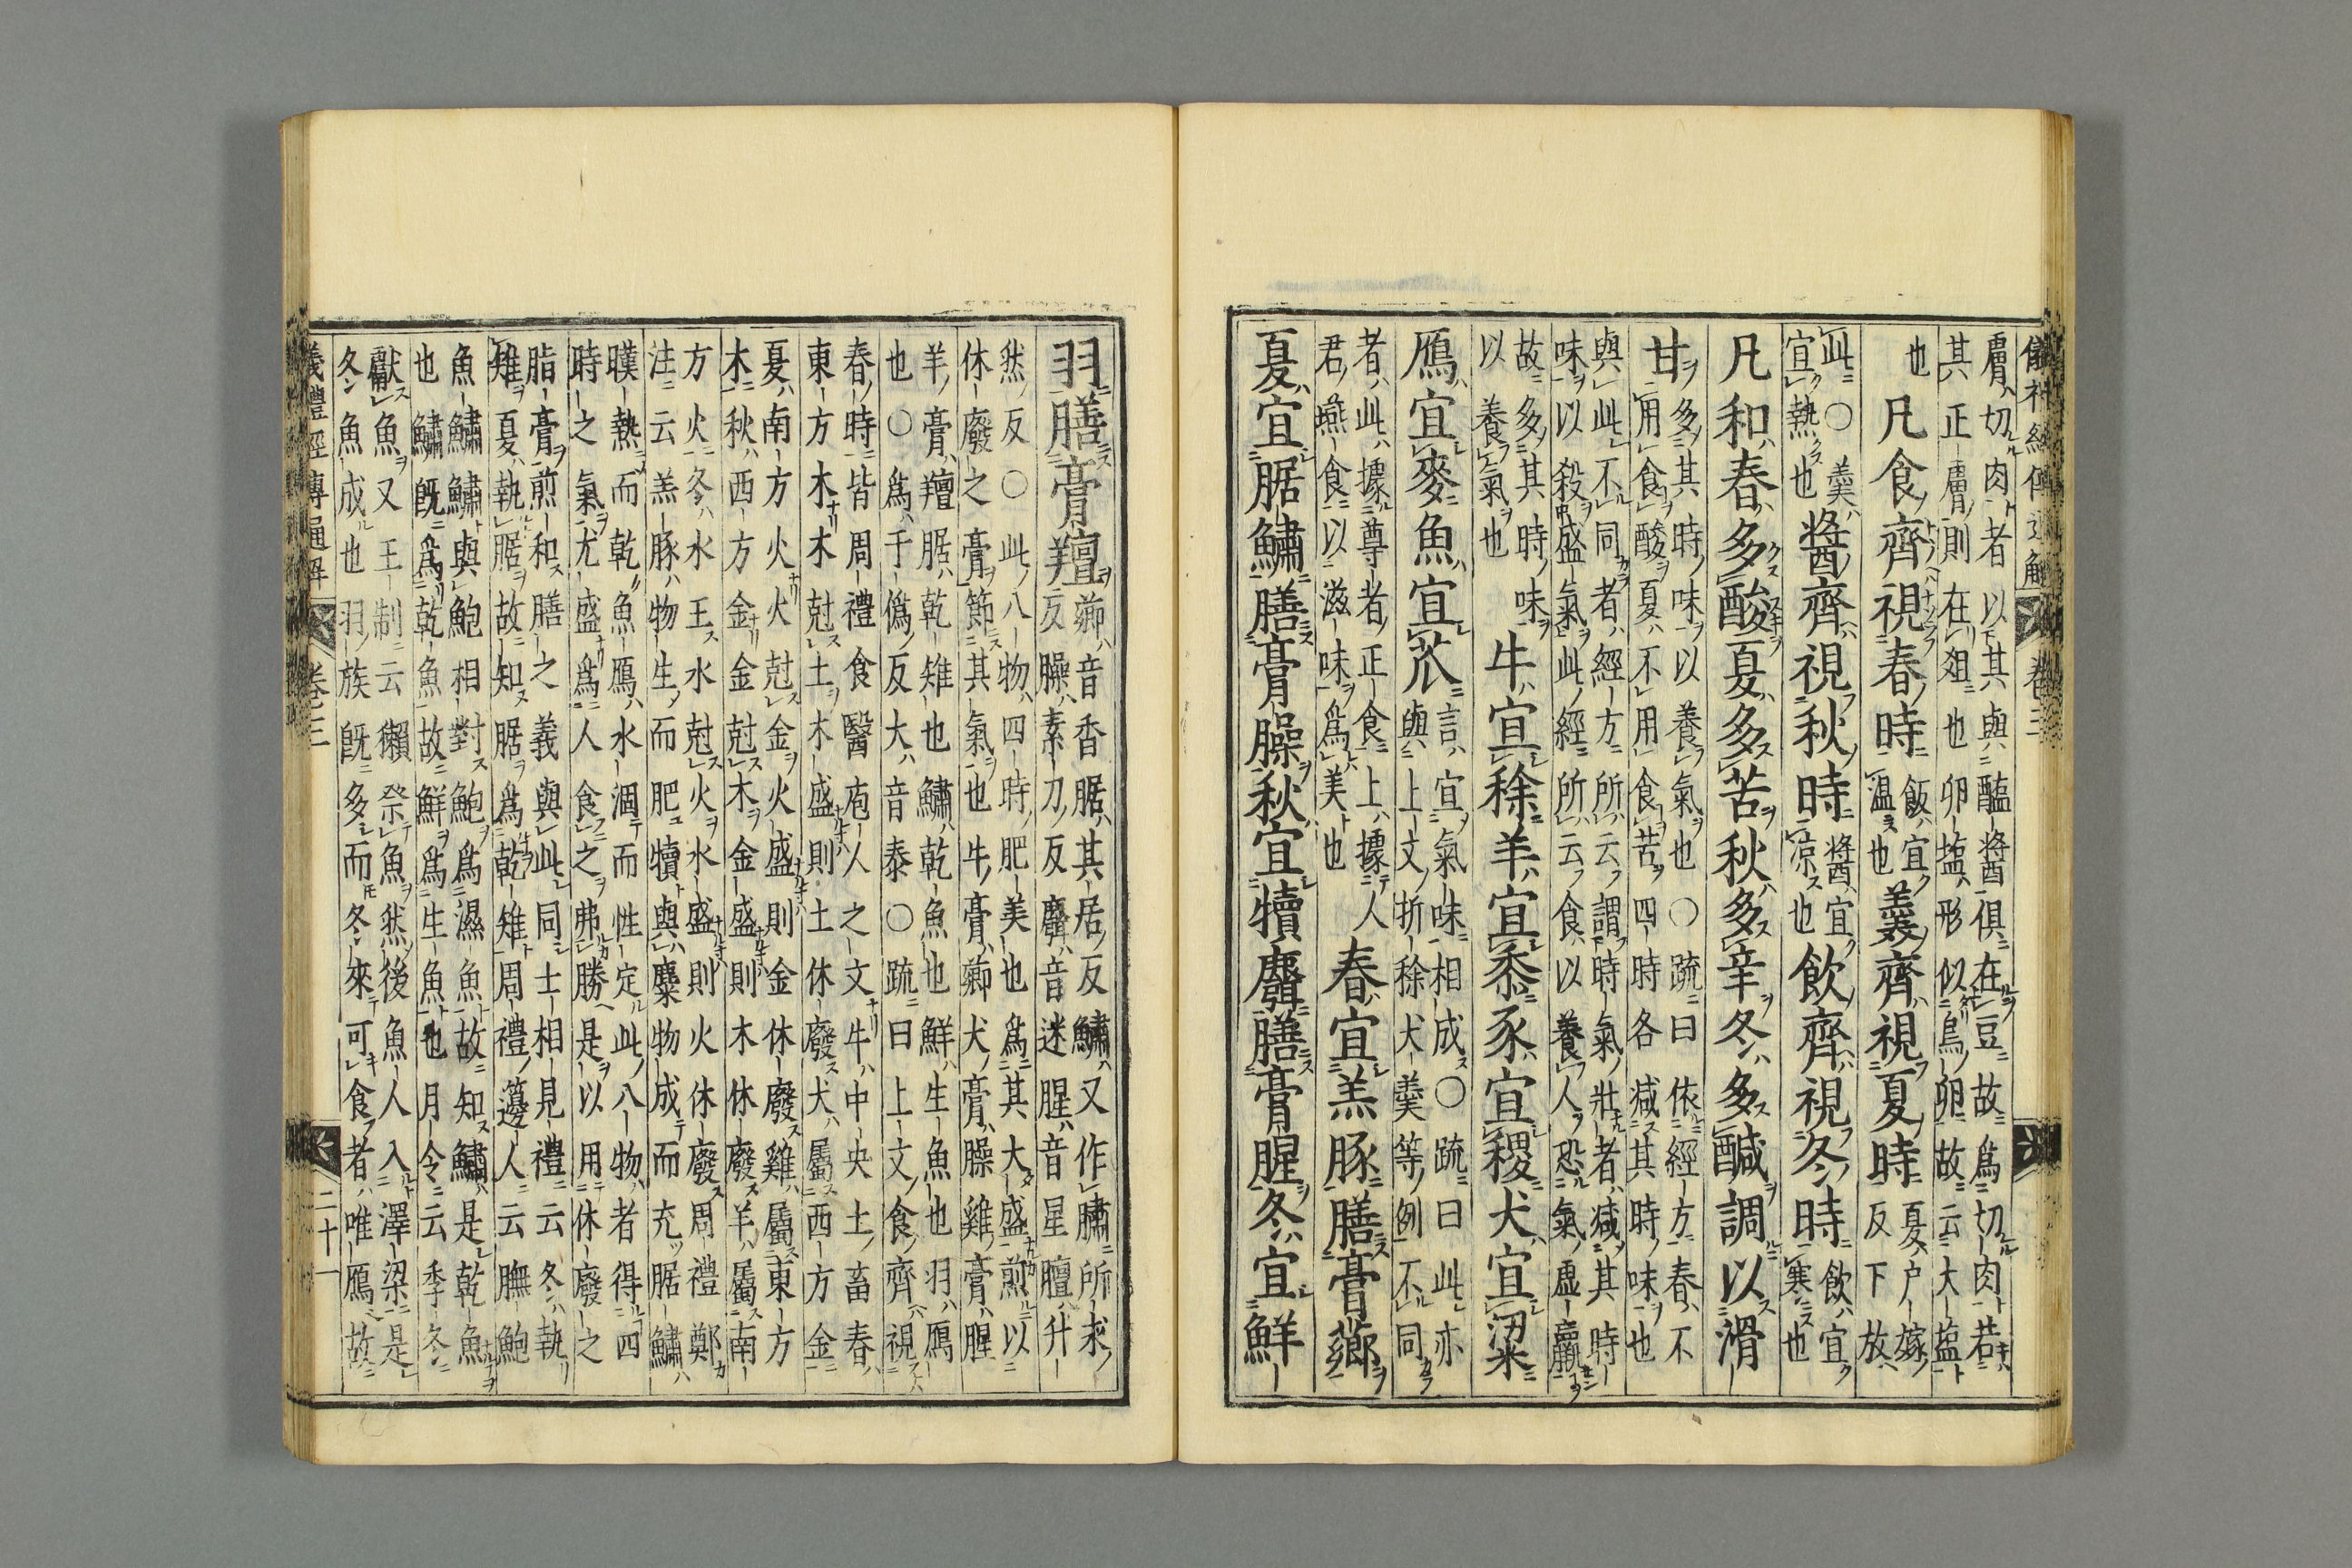 儀禮經傳通解 卷三
膚切肉者以其與醢醬俱在豆故爲切肉若
其正膚則在俎也卵塩形似鳥卵故云大塩
也凡食齊視春時飯宜溫也羹齊視夏時夏戶嫁反下放
此○羹宜熱也醬齊視秋時醬宜凉也飲齊視冬時飲宜寒也
凡和春多酸夏多苦秋多辛冬多鹹調以滑
甘多其時味以養氣也○疏曰依經方春不
用食酸夏不用食苦四時各減其時味也
與此不同者經方所云謂時氣壯者減其時
味以殺盛氣此經所云食以養人恐氣虛羸
故多其時味以養氣也牛宜稌羊宜黍豕宜稷犬宜粱
鴈宜麥魚宜苽言宜氣味相成○疏曰此亦
與上文折稌犬羹等例不同
者此據尊者正食上據人
君燕食以滋味爲美也春宜羔豚膳膏薌
夏宜腒鱐膳膏臊秋宜犢麛膳膏腥冬宜鮮
羽膳膏羶薌音香腒其居反鱐又作䐹所求
反臊素刀反麛音迷腥音星羶升
然反○此八物四時肥美也爲其大盛煎以
休廢之膏節其氣也牛膏薌犬膏臊雞膏腥
羊膏羶腒乾雉也鱐乾魚也鮮生魚也羽鴈
也○爲于僞反大音泰○疏曰上文食齊視
春時皆周禮食醫庖人之文牛中央土畜春
東方木木尅土木盛則土休廢犬屬西方金
夏南方火火尅金火盛則金休廢雞屬東方
木秋西方金金尅木金盛則木休廢羊屬南
方火冬水王水尅火水盛則火休廢周禮鄭
注云羔豚物生而肥犢與麛物成而充腒鱐
暵熱而乾魚鴈水涸而性定此八物者得四
時之氣尤盛爲人食之弗勝是以用休廢之
脂膏煎和膳之義與此同士相見禮云冬執
雉夏執腒故知腒爲乾雉周禮籩人云膴鮑
魚鱐鱐與鮑相對鮑爲濕魚故知鱐是乾魚
也鱐既爲乾魚故鮮爲生魚也月令云季冬
獻魚又王制云獺祭魚然後魚人入澤梁是
冬魚成也羽族既多而冬來可食者唯鴈故
義禮經傳通解 卷三 二十一